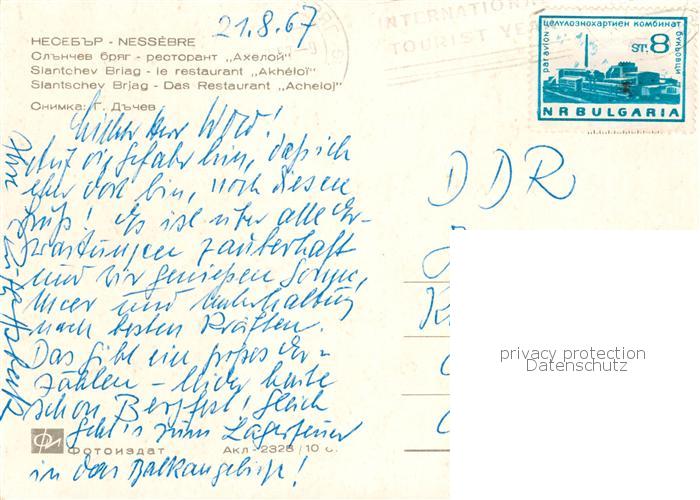 21.8.67
INTERNATIONAL
TOURIST YEAR
НЕСЕБЪР - NESSÈBRE
Слънчев бряг - ресторант „Ахелой"
Slantchev Briag - le restaurant „Akhéloï"
Slantschev Brjag - Das Restaurant „Acheloj"
Снимка: Г. Дъчев
par avion
целулознохартиен комбинат
букровци
ST. 8
NR BULGARIA
Herr Wilde!
Auf die Gefahr hin, daß ich
eher dort bin, noch diesen
Gruß! Es ist über alle Er-
wartungen zauberhaft
und wir genießen Sonne,
Meer und Unterhaltung
nach besten Kräften.
Das gibt ein großes Er-
zählen - leider heute
schon Bergfest! Gleich
geht's zum Lagerfeuer
in das Balkangebirge!
DDR
privacy protection
Datenschutz
Фотоиздат Акл-2328/10 с.